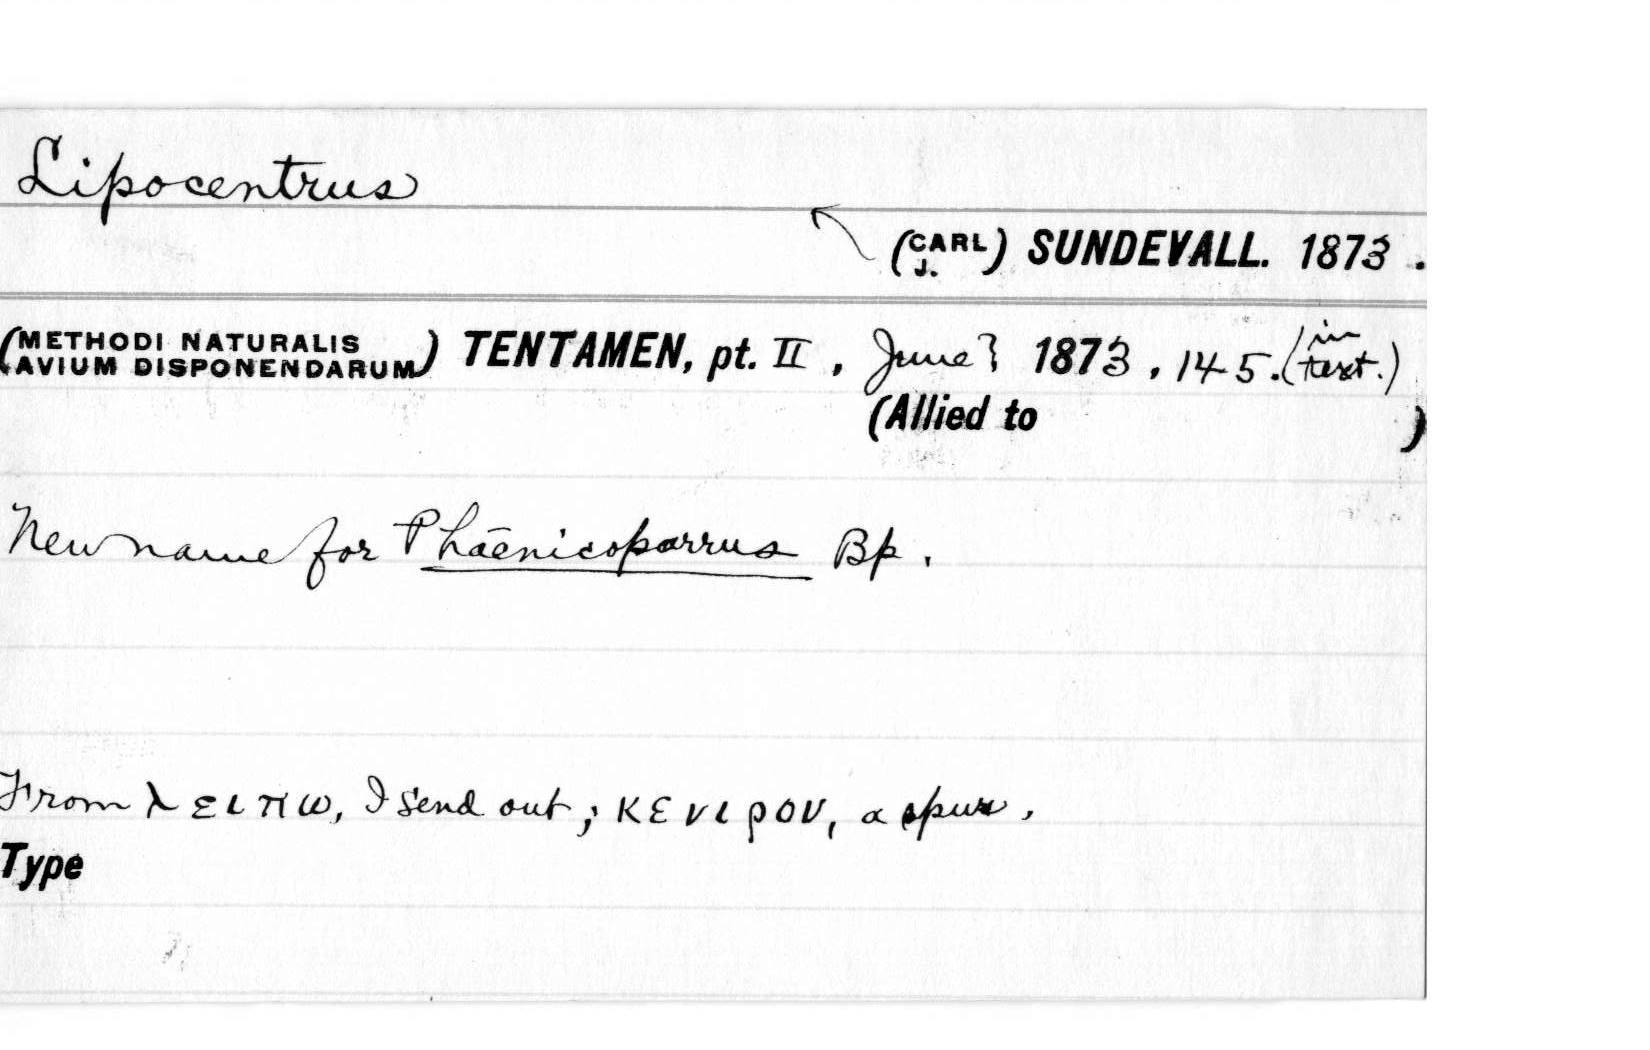 Lipocentrus
(CARL J.) SUNDEVALL. 1873.
(METHODI NATURALIS AVIUM DISPONENDARUM) TENTAMEN, pt. II, June? 1873, 145. (in text.)
(Allied to )
New name for Phœnicoparrus Bp.
From λειπω, I send out; κενιρον, a spur.
Type